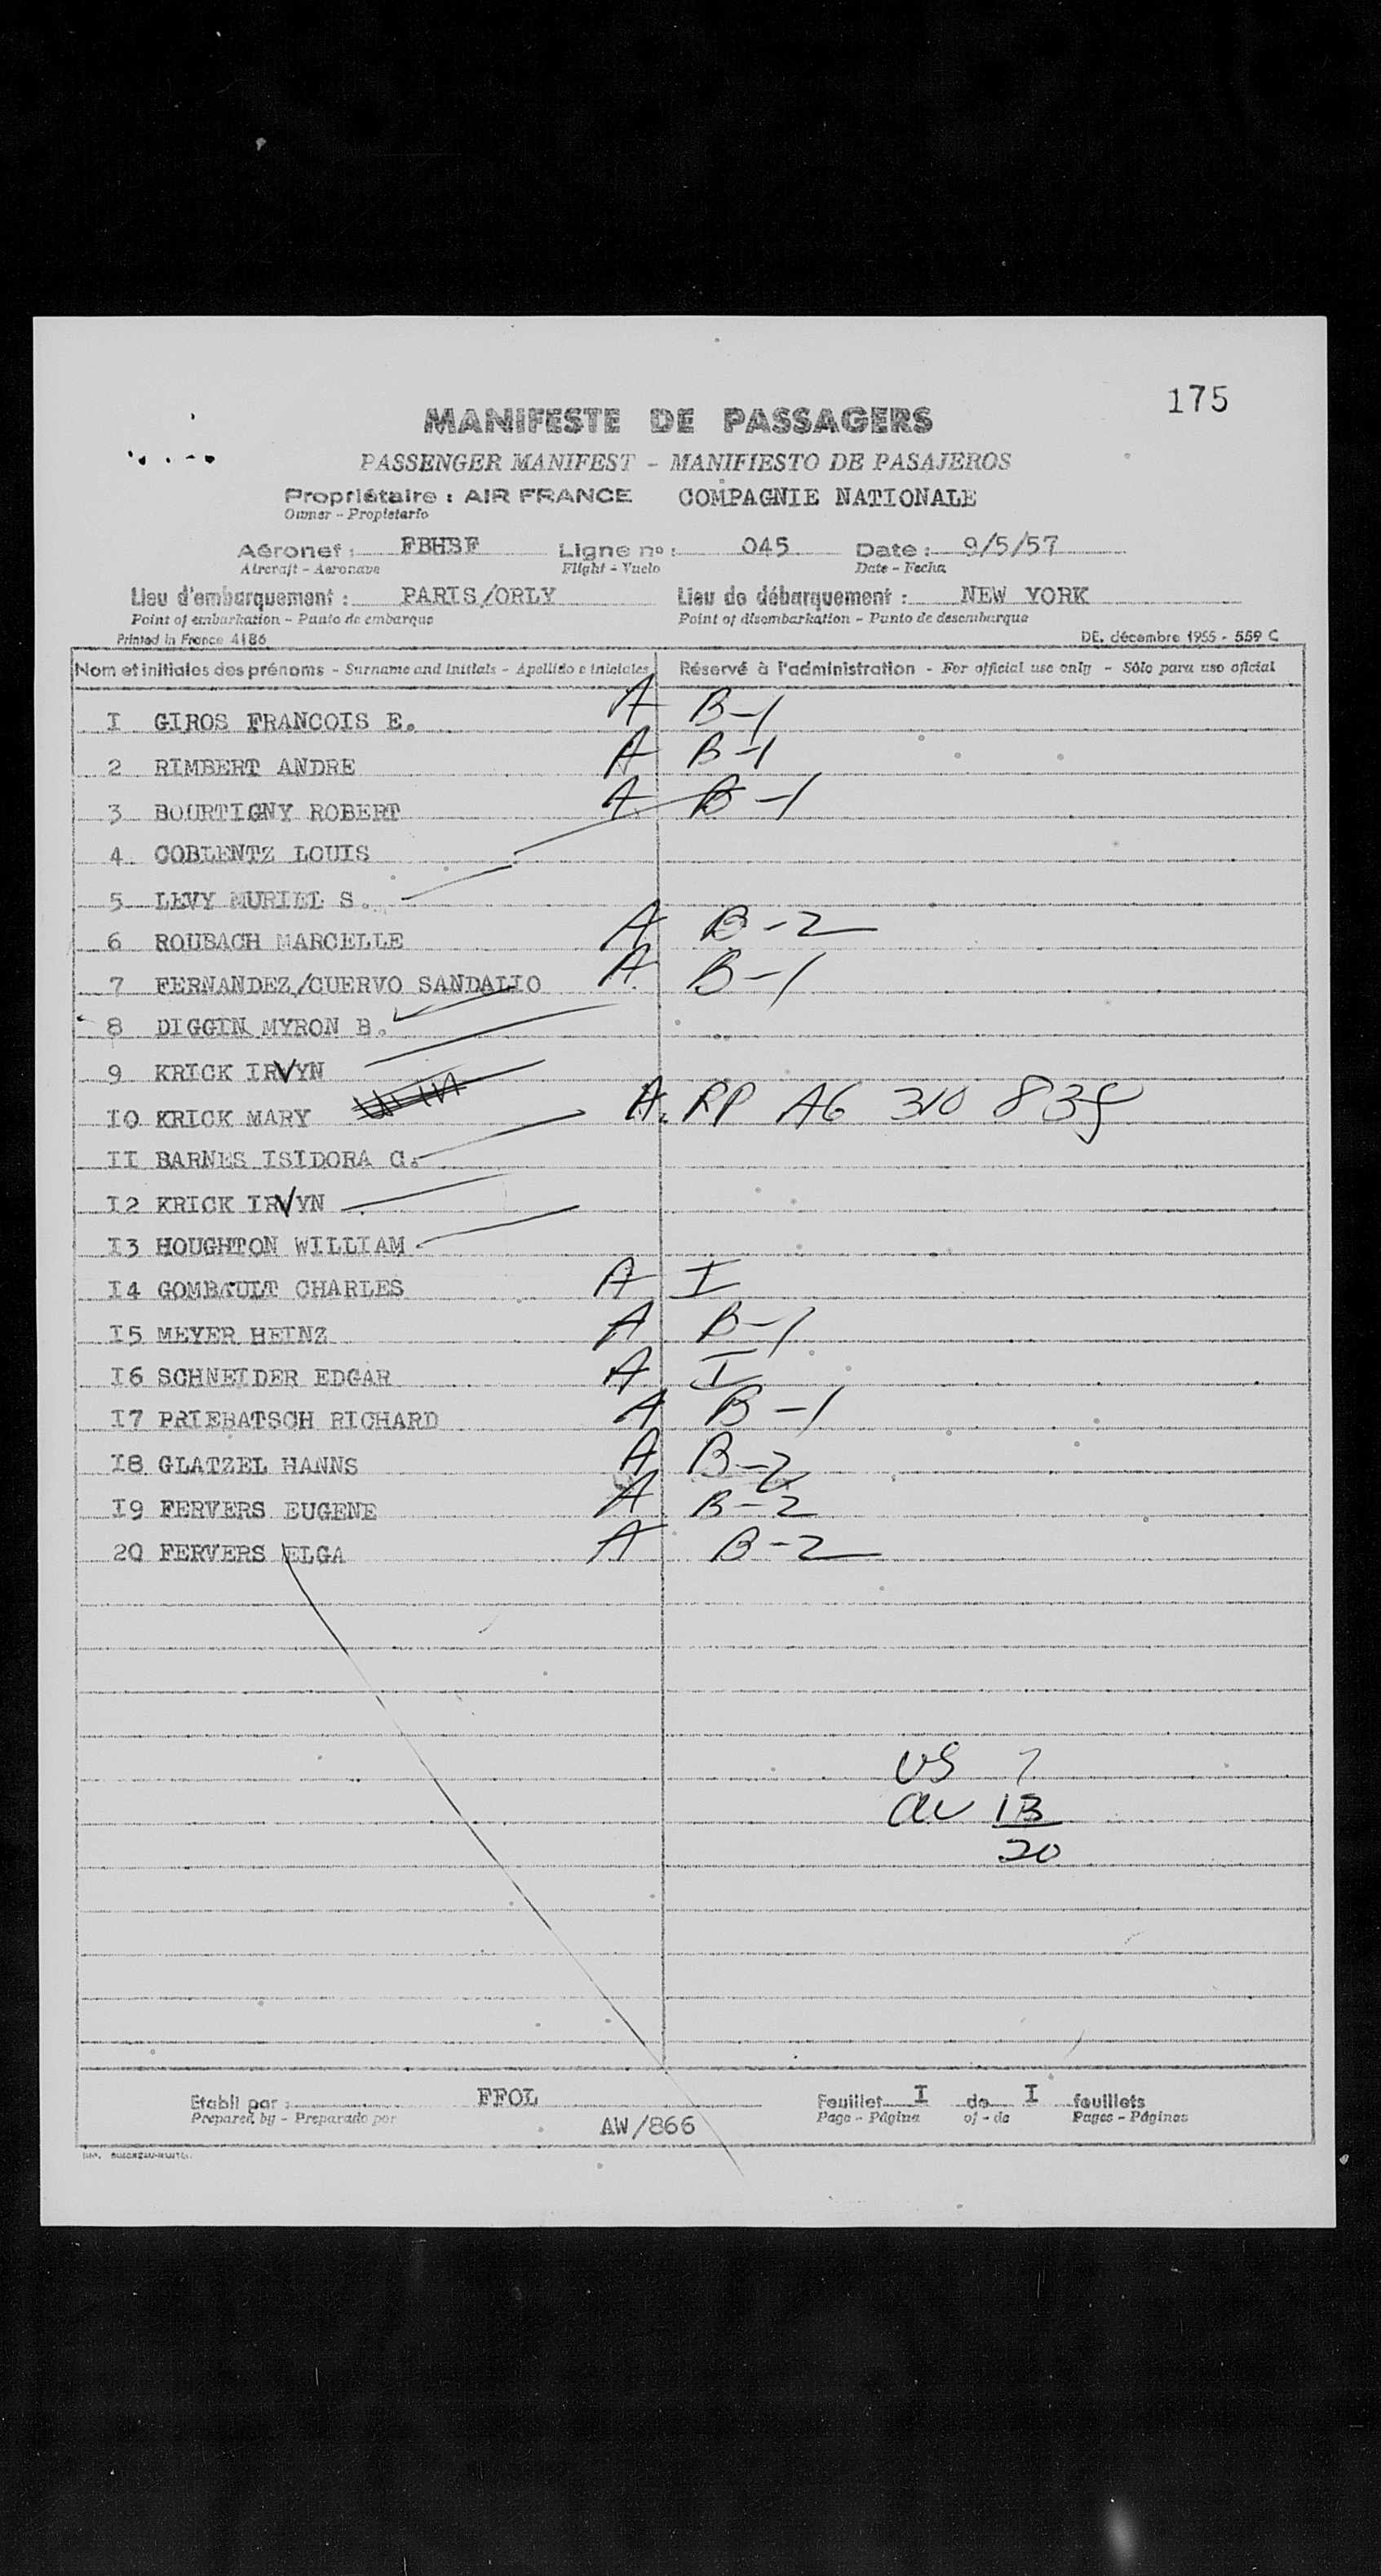 175
MANIFESTE DE PASSAGERS
PASSENGER MANIFEST - MANIFIESTO DE PASAJEROS
Propriétaire : AIR FRANCE COMPAGNIE NATIONALE
Owner - Propietario
Aéronef : FBHBF Ligne no : 045 Date : 9/5/57
Aircraft - Aeronave Flight - Vuelo Date - Fecha
Lieu d'embarquement : PARIS/ORLY Lieu de débarquement : NEW YORK
Point of embarkation - Punto de embarque Point of disembarkation - Punto de desembarque
Printed in France 4186 DE. décembre 1955 - 559 C
Nom et initiales des prénoms - Surname and initials - Apellido e iniciales Réservé à l'administration - For official use only - Sólo para uso oficial
I GIROS FRANCOIS E. A B-1
2 RIMBERT ANDRE A B-1
3 BOURTIGNY ROBERT A B-1
4 COBLENTZ LOUIS
5 LEVY MURIEL S.
6 ROUBACH MARCELLE A B-2
7 FERNANDEZ/CUERVO SANDALIO A B-1
8 DIGGIN MYRON B.
9 KRICK IRVYN
IO KRICK MARY A. RP A6 310 838
II BARNES ISIDORA C.
I2 KRICK IRVYN
I3 HOUGHTON WILLIAM
I4 GOMBAULT CHARLES A I
I5 MEYER HEINZ A B-1
I6 SCHNEIDER EDGAR A I
I7 PRIEBATSCH RICHARD A B-1
I8 GLATZEL HANNS A B-2
I9 FERVERS EUGENE A B-2
20 FERVERS ELGA A B-2
US 7
al 13
20
Etabli par : FFOL Feuillet I de I feuillets
Prepared by - Preparado por AW/866 Page - Página of - de Pages - Páginas